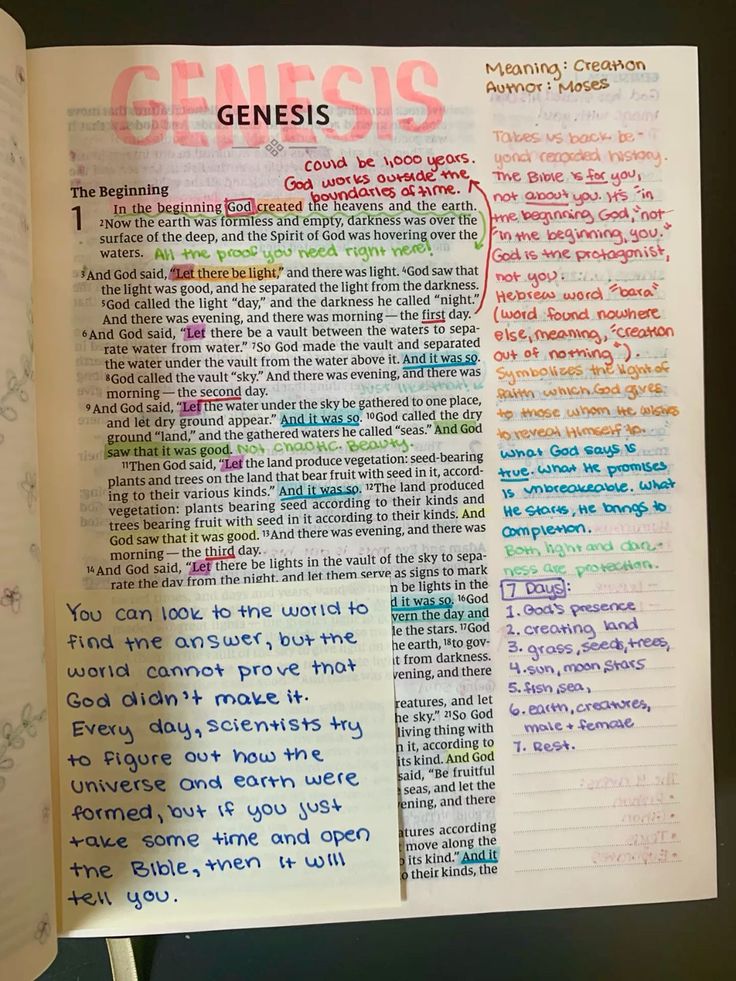 GENESIS
GENESIS
Meaning: Creation
Author: Moses
could be 1,000 years.
God works outside the
boundaries of time.
The Beginning
1 In the beginning God created the heavens and the earth.
2Now the earth was formless and empty, darkness was over the
surface of the deep, and the Spirit of God was hovering over the
waters. All the proof you need right here!
3And God said, "Let there be light," and there was light. 4God saw that
the light was good, and he separated the light from the darkness.
5God called the light "day," and the darkness he called "night."
And there was evening, and there was morning — the first day.
6And God said, "Let there be a vault between the waters to sepa-
rate water from water." 7So God made the vault and separated
the water under the vault from the water above it. And it was so.
8God called the vault "sky." And there was evening, and there was
morning — the second day.
9And God said, "Let the water under the sky be gathered to one place,
and let dry ground appear." And it was so. 10God called the dry
ground "land," and the gathered waters he called "seas." And God
saw that it was good. Not chaotic. Beauty.
11Then God said, "Let the land produce vegetation: seed-bearing
plants and trees on the land that bear fruit with seed in it, accord-
ing to their various kinds." And it was so. 12The land produced
vegetation: plants bearing seed according to their kinds and
trees bearing fruit with seed in it according to their kinds. And
God saw that it was good. 13And there was evening, and there was
morning — the third day.
14And God said, "Let there be lights in the vault of the sky to sepa-
rate the day from the night, and let them serve as signs to mark
be lights in the
it was so. 16God
vern the day and
le the stars. 17God
he earth, 18to gov-
t from darkness.
vening, and there
reatures, and let
he sky." 21So God
living thing with
n it, according to
its kind. And God
said, "Be fruitful
seas, and let the
vening, and there
atures according
move along the
its kind." And it
o their kinds, the
You can look to the world to
find the answer, but the
world cannot prove that
God didn't make it.
Every day, scientists try
to figure out how the
universe and earth were
formed, but if you just
take some time and open
the Bible, then it will
tell you.
Takes us back be-
yond recorded history.
The Bible is for you,
not about you. It's "in
the beginning God," not
"in the beginning, you."
God is the protagonist,
not you.
Hebrew word "bara"
(word found nowhere
else, meaning, "creation
out of nothing").
Symbolizes the light of
faith which God gives
to those whom He wishes
to reveal Himself to.
What God says is
true. What He promises
is unbreakable. What
He starts, He brings to
completion.
Both light and dark-
ness are protection.
7 Days:
1. God's presence
2. creating land
3. grass, seeds, trees,
4. sun, moon, stars
5. fish, sea,
6. earth, creatures,
male + female
7. Rest.